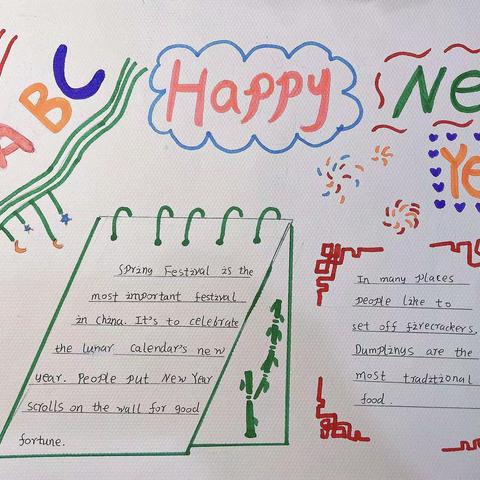 ABC
Happy
Ne
Ye
Spring Festival is the
most important festival
in China. It's to celebrate
the lunar calendar's new
year. People put New Year
scrolls on the wall for good
fortune.
In many places
people like to
set off firecrackers.
Dumplings are the
most traditional
food.